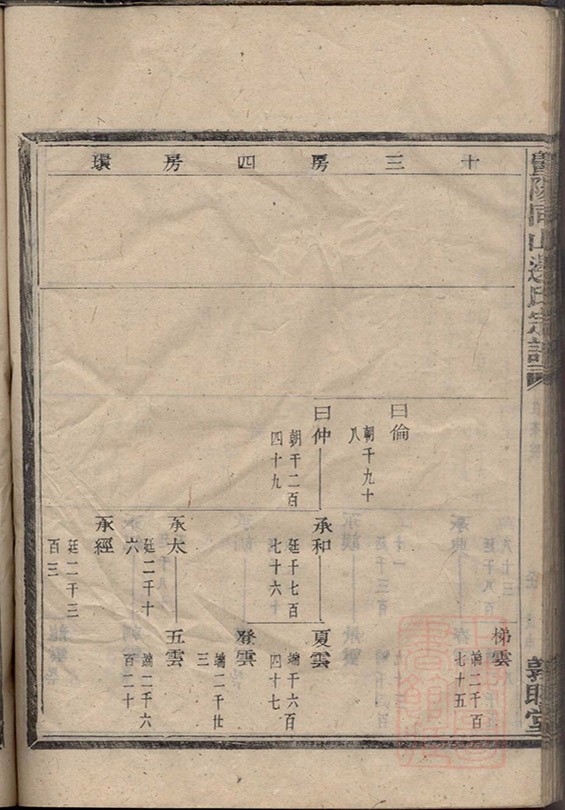 暨陽同山邊氏宗譜
敦睦堂
十三房四房環
梯雲
端二千百
七十五
曰倫
朝千九十
八
曰仲
朝千二百
四十九
承和
廷千七百
七十六
夏雲
端千六百
四十七
登雲
端二千廿
三
承太
廷二千十
六
五雲
端二千六
百二十
承經
廷二千三
百三